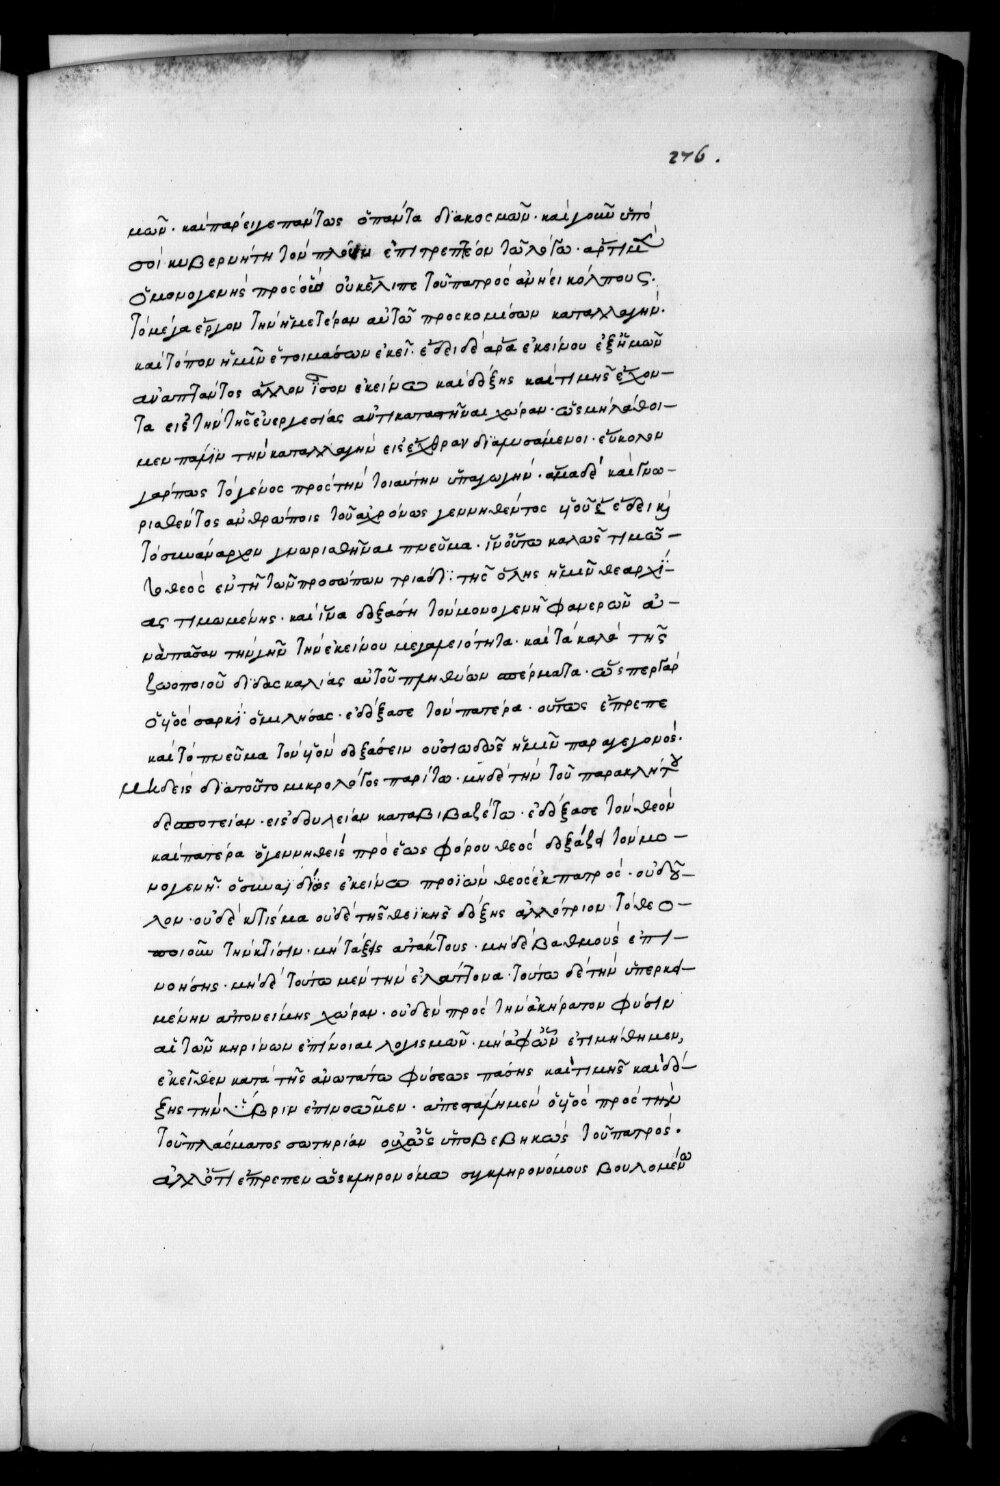 276.
μῶν· καὶ παρεῖχε πάντως ὁ πάντα διακοσμῶν· καὶ γοῦν ὑπό
σοι κυβερνήτῃ τὸν πλοῦν ἐπιτρεπτέον τῶ λόγω· ἄρτι μὲν
ὁ μονογενὴς πρὸς οὓς οὐκ ἔλιπε τοῦ πατρὸς ἀνῄει κόλπους·
τὸ μέγα ἔργον τὴν ἡμετέραν αὐτῶ προσκομίσων καταλλαγήν·
καὶ τόπον ἡμῖν ἑτοιμάσων ἐκεῖ· ἔδει δὲ ἄρα ἐκείνου ἐξ ἡμῶν
ἀναπτάντος ἄλλον ἴσον ἐκείνω καὶ δόξης καὶ τιμῆς ἔχον-
τα εἰς τὴν τῆς εὐεργεσίας ἀντικαταστῆναι χώραν· ὡς μὴ λάθοι-
μεν πάλιν τὴν καταλλαγὴν εἰς ἔχθραν διαμυσάμενοι· εὔκολον
γάρ πως τὸ γένος πρὸς τὴν τοιαύτην ὑπαγωγήν· ἅμα δὲ καὶ γνω-
ρισθέντος ἀνθρώποις τοῦ ἀχρόνως γεννηθέντος υἱοῦ ἔδει κ
τὸ συνάναρχον γνωρισθῆναι πνεῦμα· ἵν' οὕτω καλῶς τιμῶ-
το θεὸς ἐν τῆ τῶν προσώπων τριάδι· τῆς ὅλης ἡμῖν θεαρχί-
ας τιμωμένης· καὶ ἵνα δοξάση τὸν μονογενῆ φανερῶν ἀ-
νὰ πᾶσαν τὴν γῆν τὴν ἐκείνου μεγαλειότητα· καὶ τὰ καλὰ τῆς
ζωοποιοῦ διδασκαλίας αὐτοῦ πληθύνων σπέρματα· ὥσπερ γὰρ
ὁ υἱὸς σαρκὶ ὁμιλήσας· ἐδόξασε τὸν πατέρα· οὕτως ἔπρεπε
καὶ τὸ πνεῦμα τὸν υἱὸν δοξάσειν οὐσιωδῶς ἡμῖν παραγεγονός·
μηδεὶς διὰ τοῦτο μικρολόγος παρίτω· μηδὲ τὴν τοῦ παρακλήτου
δεσποτείαν· εἰς δουλείαν καταβιβαζέτω· ἐδόξασε τὸν θεὸν
καὶ πατέρα ὁ γεννηθεὶς πρὸ ἑωσφόρου θεὸς δοξάζει τὸν μο-
νογενῆ· ὁ συναΐδιος ἐκείνω προϊὼν θεὸς ἐκ πατρός· οὐ δοῦ-
λον· οὐδὲ κτίσμα οὐδὲ τῆς θεϊκῆς δόξης ἀλλότριον τὸ θεο-
ποιοῦν τὴν κτίσιν· μὴ τάξεις ἀτάκτους· μηδὲ βαθμοὺς ἐπι-
νοήσης· μηδὲ τούτω μὲν τὴν ἐλάττονα· τούτω δὲ τὴν ὑπερκει-
μένην ἀπονείμης χώραν· οὐδὲν πρὸς τὴν ἀκήρατον φύσιν
αἱ τῶν κηρίνων ἐπίνοιαι λογισμῶν· μὴ ἀφ' ὧν ἐτιμήθημεν,
ἐκεῖθεν κατὰ τῆς ἀνωτάτω φύσεως πάσης καὶ τιμῆς καὶ δό-
ξης τὴν ὕβριν ἐπινοῶμεν· ἀπεστάλη μὲν ὁ υἱὸς πρὸς τὴν
τοῦ πλάσματος σωτηρίαν οὐχ ὡς ὑποβεβηκὼς τοῦ πατρός·
ἀλλ' ὅτι ἔπρεπεν ὡς κληρονόμω συγκληρονόμους βουλομένω